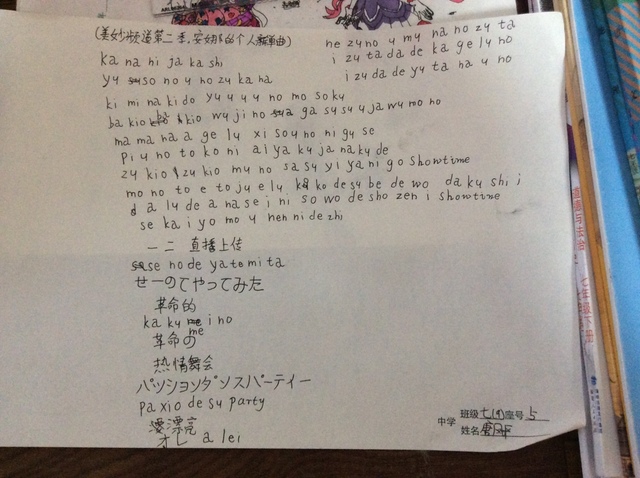 (美妙频道第二季,安娜的个人新单曲)
ne zu no y mu na no zu ta
i zu ta da de ka ge lu no
i zu da de yu ta na u no
ka na hi ja ka shi
yu so no u no zu ka na
ki mi na ki do yu u y u no mo so ku
ba kio kio wu ji no ga su su u ja wu mo no
ma ma na a ge lu xi so u no ni gu se
pi u no to ko ni al ya ku ja na ku de
zu kio zu kio mu no sa su yi ya ni go showtime
mo no to e to ju e lu ka ko de su be de wo da ku shi i
da lu de a na se i ni so wo de sho zen i showtime
se ka i yo mo u nen ni de zhi
一二 直播上传
se no de ya te mi ta
せーのでやってみた
革命的
ka ku me i no
革命の
热情舞会
パッションダンスパーティー
pa xio de su party
漂亮
オレ a lei
中学
班级七(4)座号5
姓名
道德与法治
七年级 下册